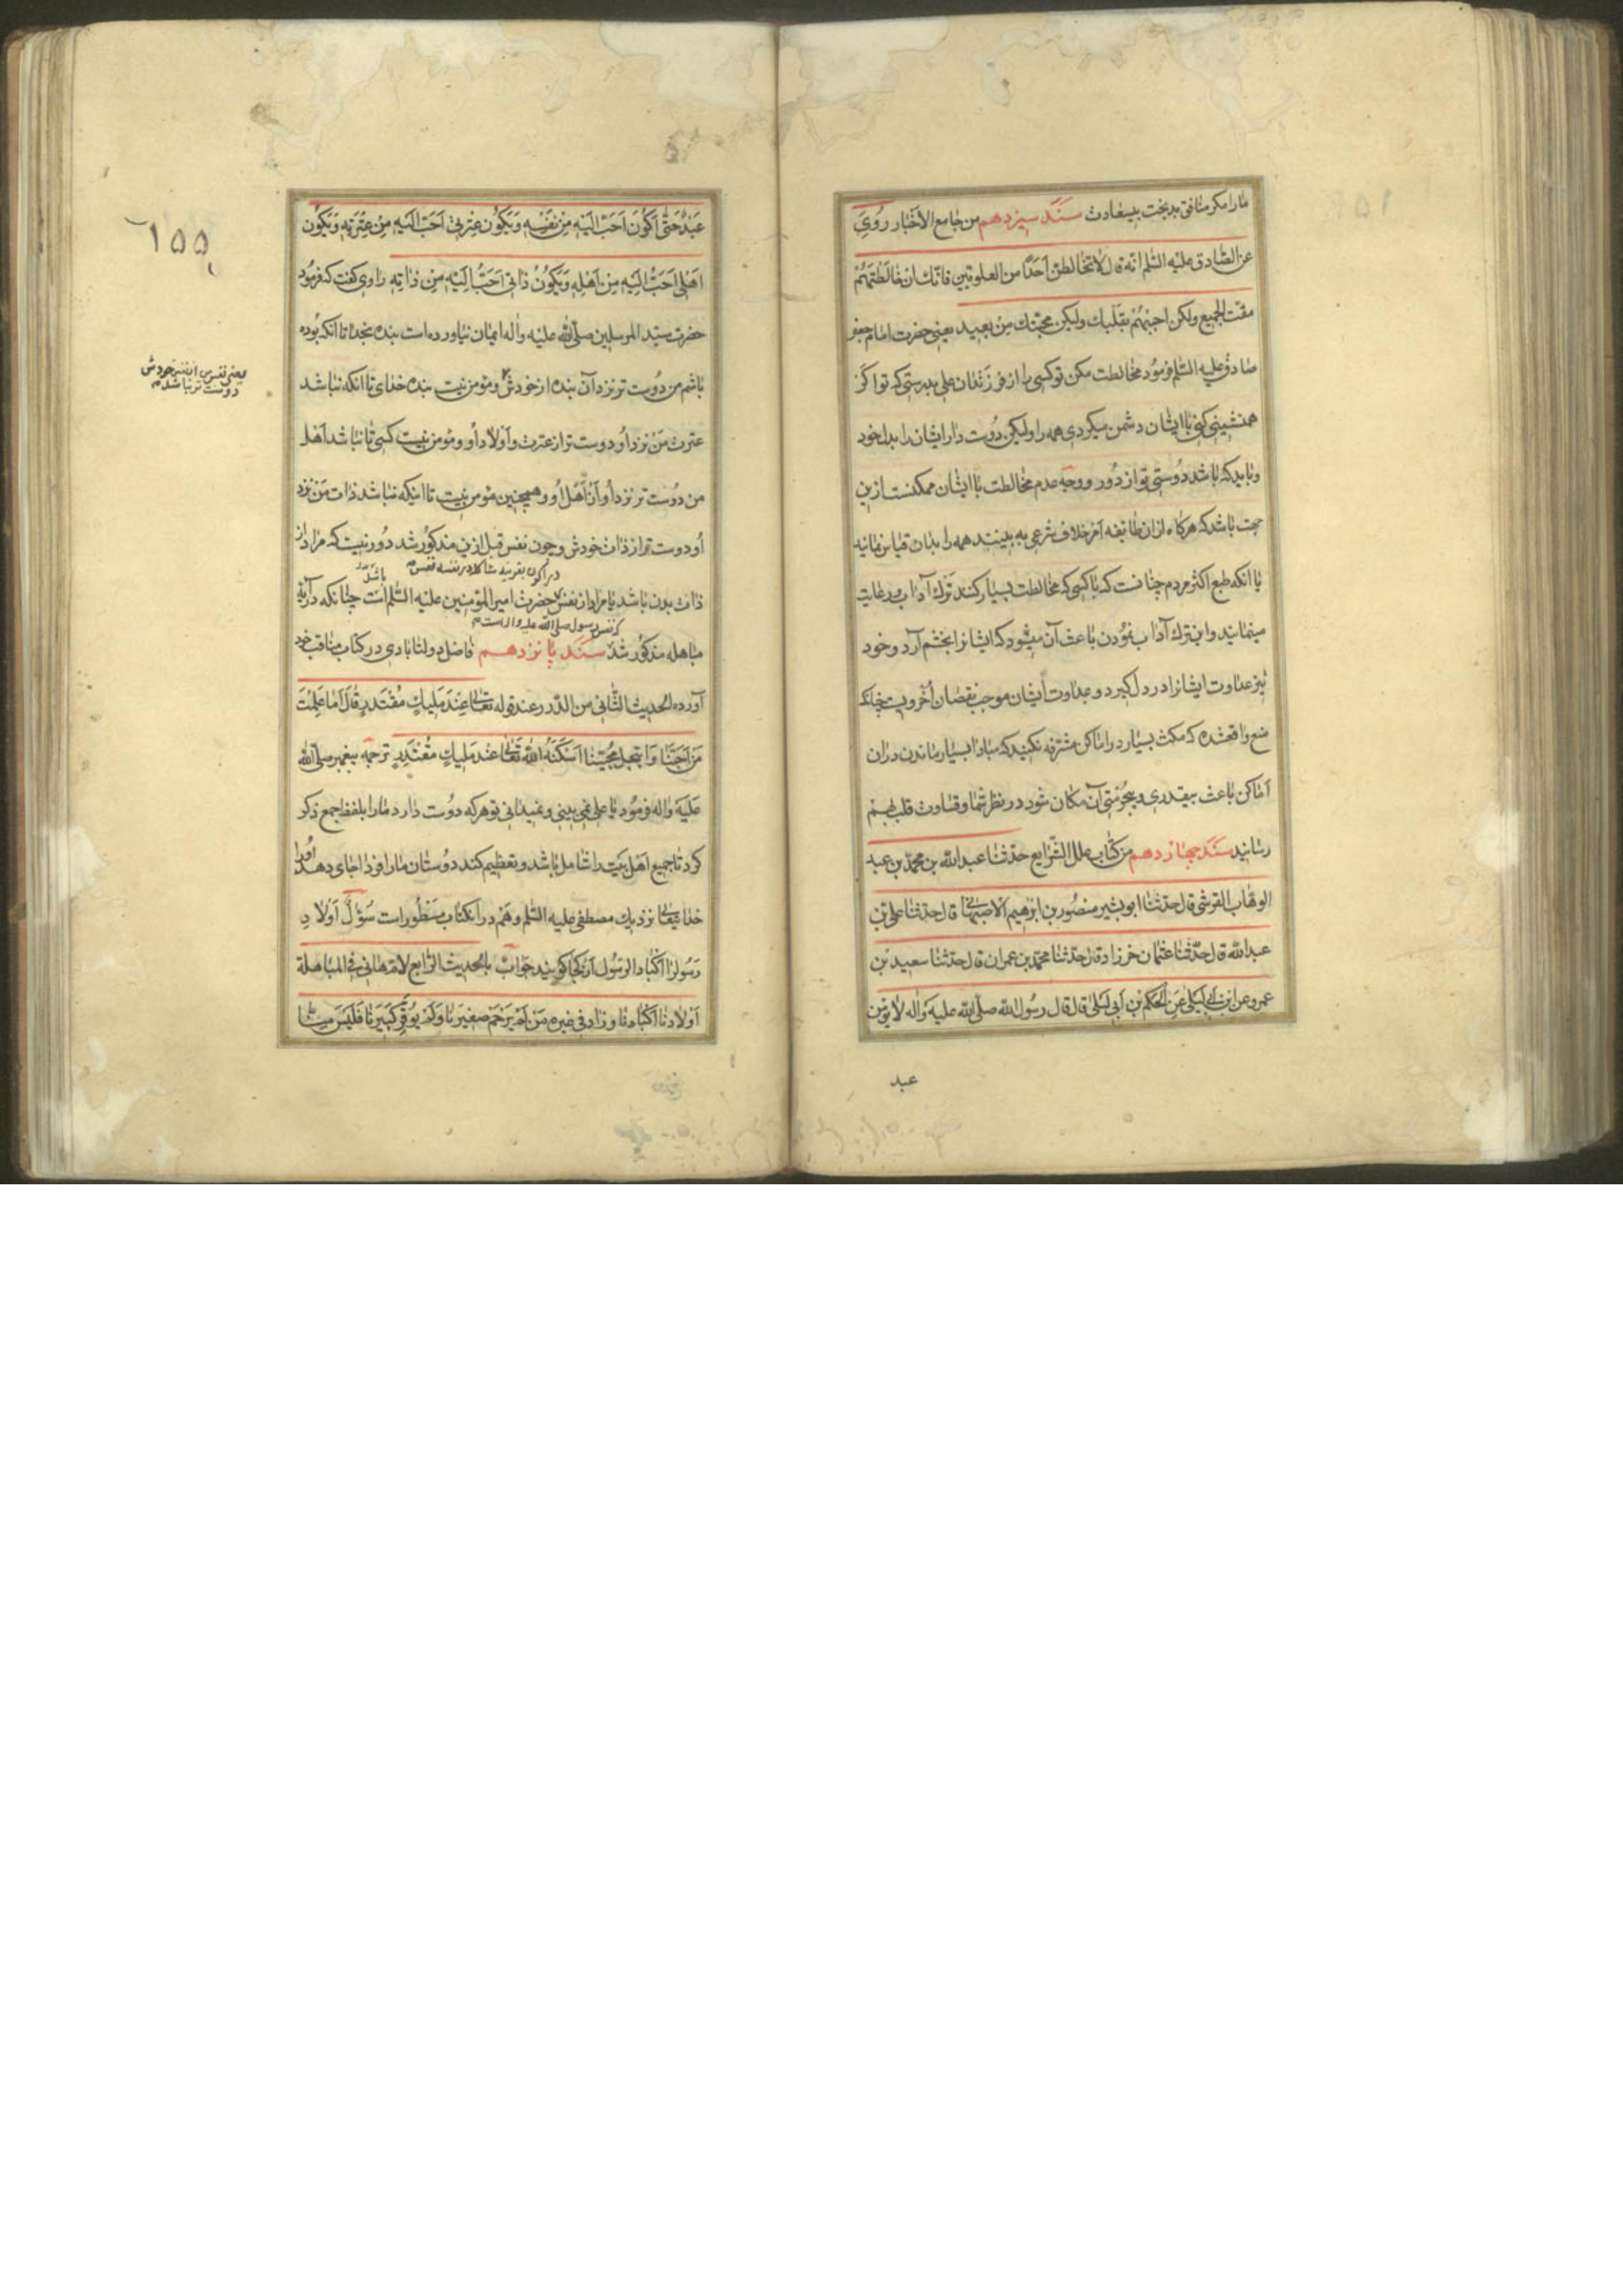 ما را مکر منافق بدبخت بیسعادت سَنَد سیزدهم من جامع الاخبار رُوِیَ
عن الصّادق علیه السّلم انّه قال لا تخالطنّ اَحدًا من العلویّین فانّک ان خالَطْتَهُمْ
مقت الجمیع ولکن اَحبّهُمْ بقَلبک ولیکن محبّتک مِنْ بعید یعنی حضرت امام جعفر
صادق علیه السّلم فرمُود مخالطت مکن تو کسی را از فرزندان علی بدرستی که تو اکر
همنشینی کنی با ایشان دشمن میکردی همه را ولیکن دُوست دار ایشان را بدل خود
و باید که باشد دُوستی تو از دُور و وجه عدم مخالطت با ایشان ممکنست ازین
جهت باشد که هرکاه از ان طایفه امر خلاف شرعی به بینند همه را بدان قیاس نمایند
یا انکه طبع اکثر مردم چنانست که با کسی که مخالطت بسیار کنند ترک آداب و رعایت
مینمایند و این ترک آداب نمُودن باعث آن میشود که ایشانرا بخشم آرد و خود
نیز عداوت ایشانرا در دل کیرد و عداوت ایشان موجب نقصان اُخرویست چنانکه
منع واقعشده که مکث بسیار در اماکن مشرّفه نکنید که مبادا بسیار ماندن دران
اَماکن باعث بیقدری و بیحُرمتی آن مکان شود در نظر شما و قساوت قلب بهم
رساند سَنَد چهاردهم من کتاب علل الشّرایع حدّثنا عبد الله بن محمّد بن عبد
الوهّاب القرشی قال حدّثنا ابو بشیر منصُور بن ابرهیم الاصبهانی قال حدّثنا علی بن
عبد الله قال حدّثنا عثمان خرزاد قال حدّثنا محمّد بن عمران قال حدّثنا سعید بن
عمرو عن ابن ابی لیلی عَنِ الحکم بن اَبی لیلی قال قال رسُول الله صلّی الله علیه وآله لا یؤمن
عبد
۱۵۵
عَبْدٌ حَتّی اَکُونَ اَحَبّ اِلَیْهِ مِنْ نَفْسِهِ وَیَکُونَ عِتْرَتی اَحَبّ اِلَیْهِ مِنْ عِتْرَتِهِ وَیَکُون
اَهْلی اَحَبُّ اِلَیْهِ مِنْ اَهْلِهِ وَیَکُونُ ذاتی اَحَبُّ اِلَیْهِ مِنْ ذاتِهِ راوی کفت که فرمُود
حضرت سیّد المرسلین صلّی الله علیه وآله ایمان نیاورده است بنده بخدا تا انکه بُوده
باشم من دُوست تر نزد آن بنده از خودش و مؤمن نیست بنده خدای تا انکه نباشد
یعنی نفس من از نفس خودش
دوست تر نباشد
عترت مَنْ نزد اُو دوست تر از عترت و اَولاد اُو و مؤمن نیست کسی تا نباشد اَهل
من دُوست تر نزد اُو از اَهل اُو و همچنین مؤمن نیست تا اینکه نباشد ذات مَنْ نزد
اُو دوست تر از ذات خودش و چون نفس قبل ازین مذکُور شد دُور نیست که مراد از
در اکون بقرینه مشاکله در نفسه نفس باشد
ذات بدن باشد یا مراد از نفس حضرت امیر المؤمنین علیه السّلم است چنانکه در آیه
که نفس رسول صلّی الله علیه واله است
مباهله مذکُور شد سَنَد پانزدهم فاضل دولت‌ابادی در کتاب مناقب خود
آورده الحدیث الثّانی من الدّرر عند قوله تعالی عِنْدَ مَلیکٍ مُقْتَدِرٍ قالَ اَما عَلِمْتَ
مَنْ اَحَبَّنا وَانتحل محبّتنا اَسْکَنَهُ اللهُ تَعالی عند مَلیکٍ مُقْتَدِرٍ ترجمه پیغمبر صلّی الله
علیه واله فرمُود یا علی نمی بینی و نمیدانی تو هرکه دُوست دارد ما را بلفظ جمع ذکر
کرد تا جمیع اَهل بَیت را شامل باشد و تعظیم کند دوُستان ما را فردا جای دهد اُو را
خدایتعالی نزدیک مصطفی علیه السّلم و هَم در انکتاب مسَطُور است سؤال اَولادِ
رَسُول را اکباد الرسُول از کجا کویند جواب بالحدیث الرّابع لامّ هانی فی المباهلة
اَوْلادُنا اکبادنا و زاد فی غیره مَنْ لَمْ یَرْحَمْ صَغیرَنا وَلَمْ یُوَقِّرْ کَبیرَنا فَلَیْسَ مِنّا